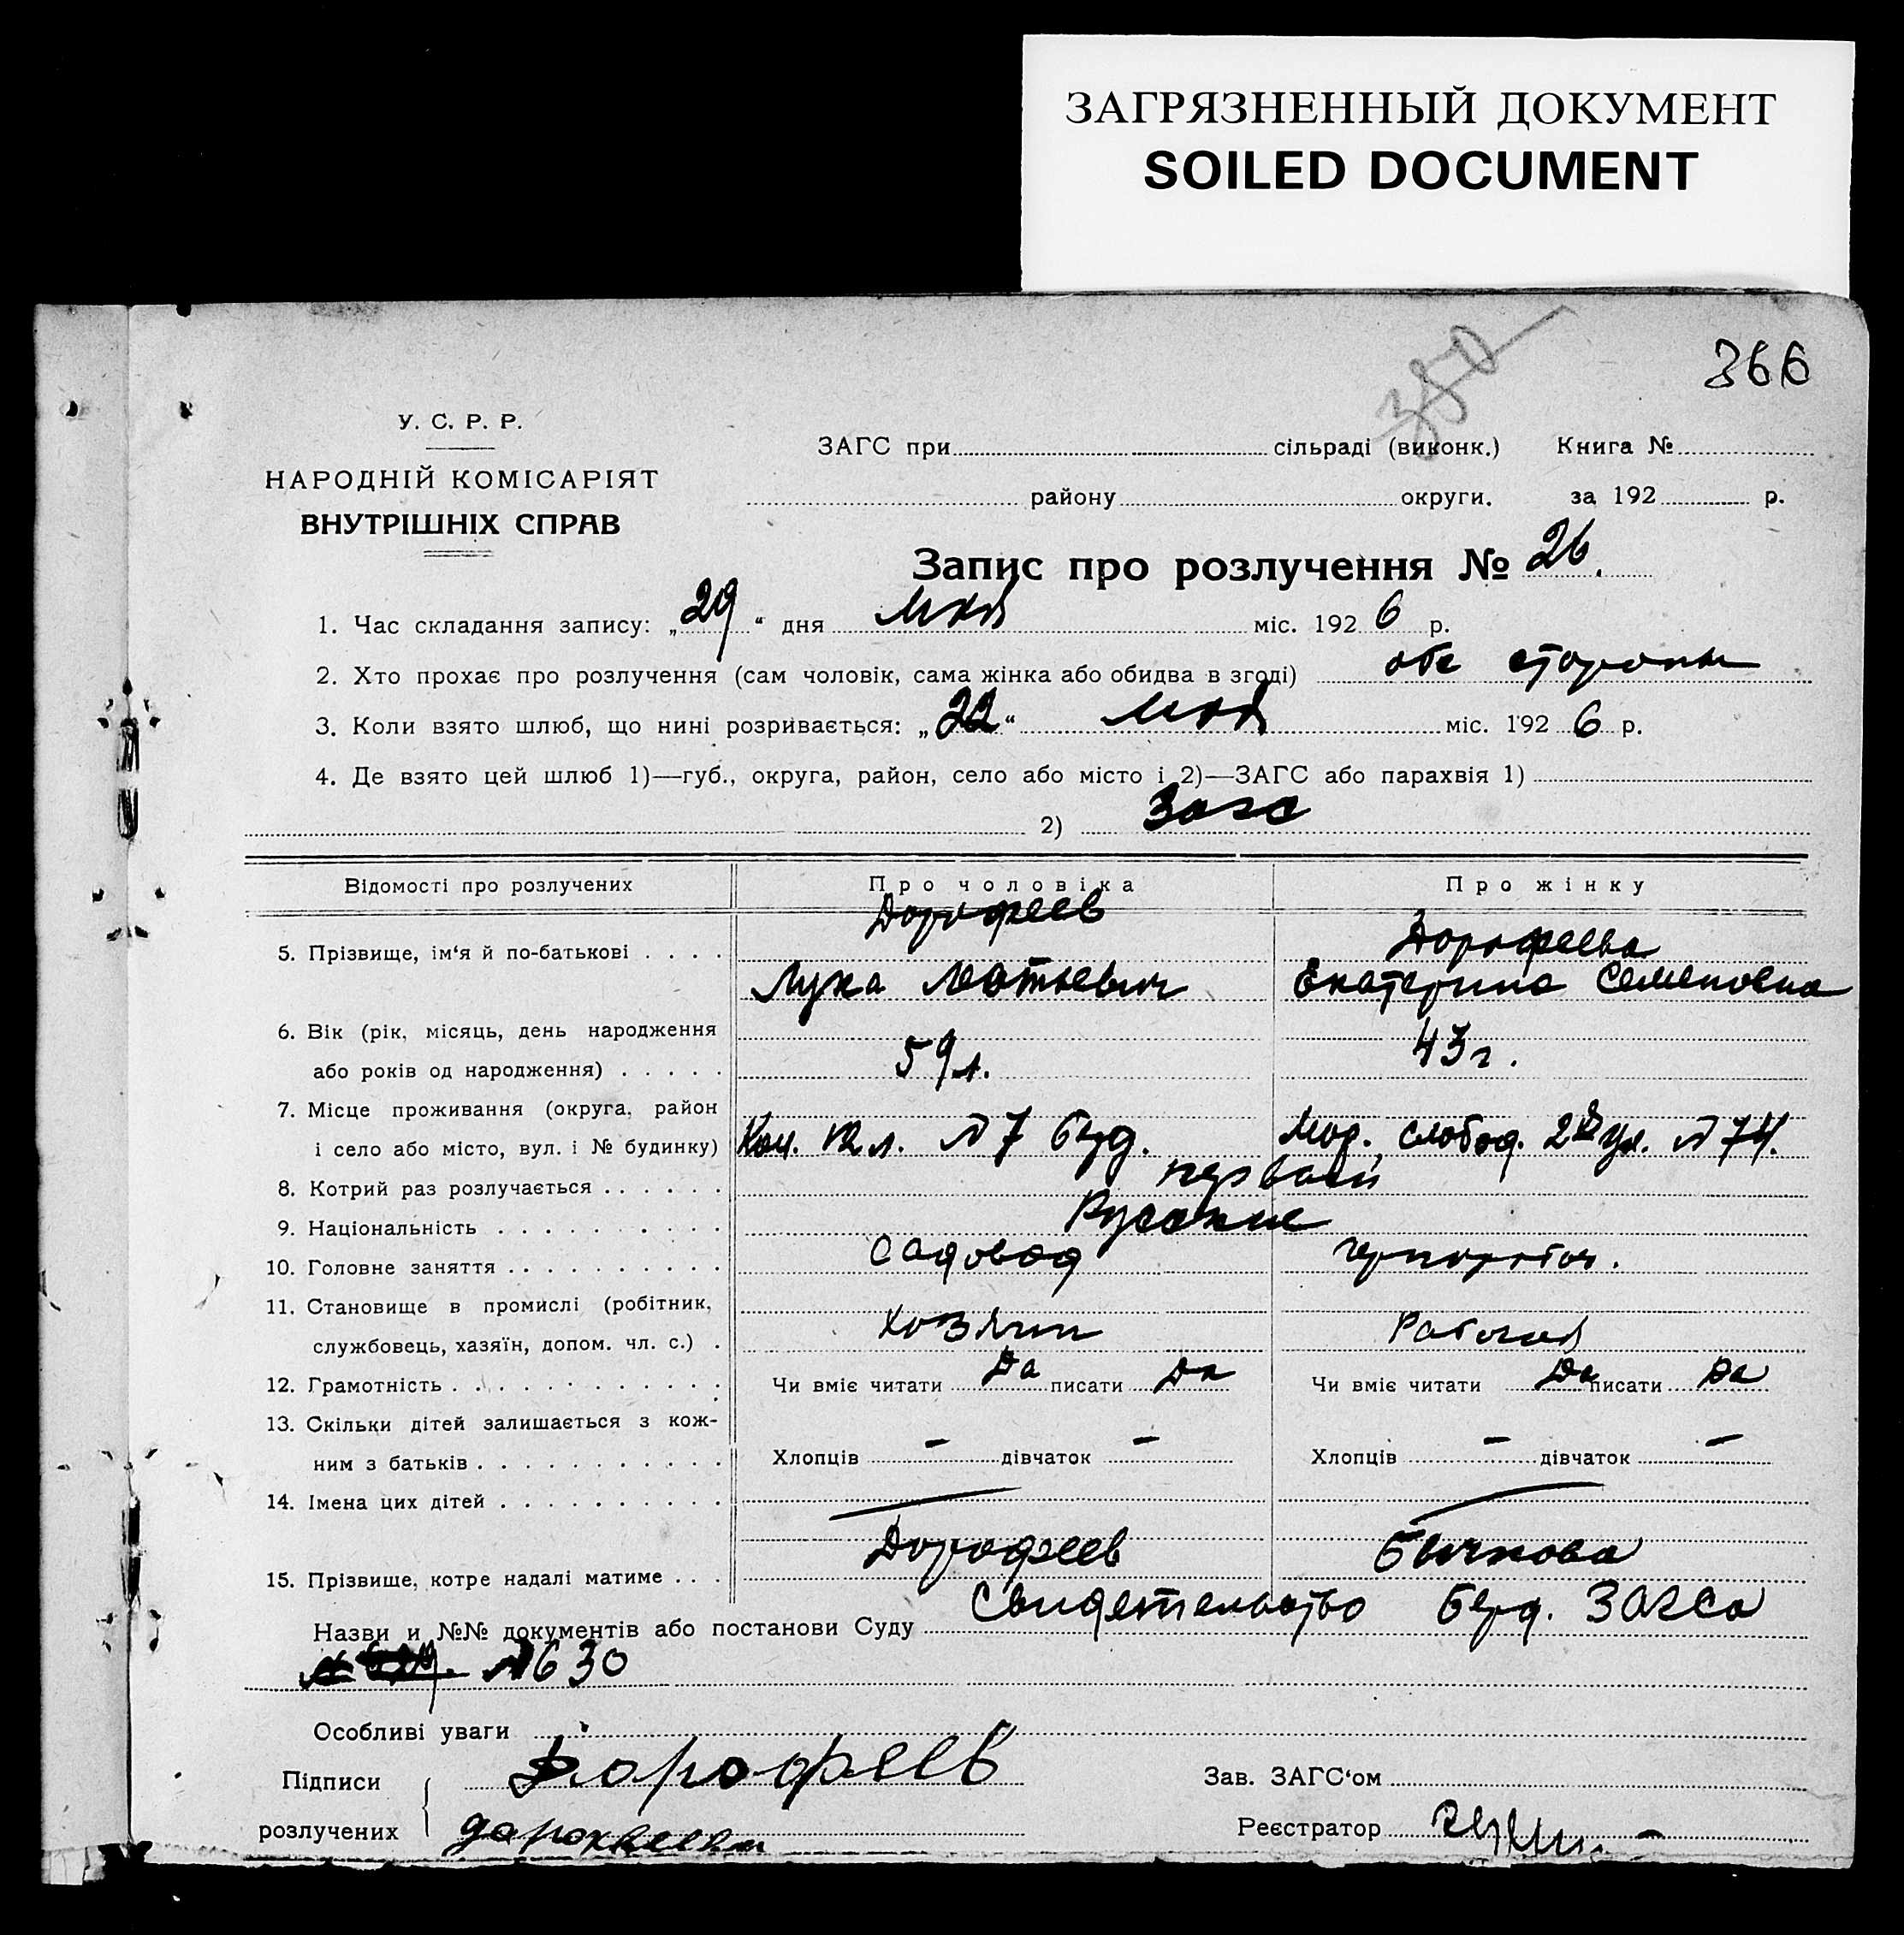 ЗАГРЯЗНЕННЫЙ ДОКУМЕНТ
SOILED DOCUMENT
380
366
У. С. Р. Р.
НАРОДНІЙ КОМІСАРІЯТ
ВНУТРІШНІХ СПРАВ
ЗАГС при сільраді (виконк.) Книга №
району округи. за 192 р.
Запис про розлучення № 26.
1. Час складання запису: „29“ дня мая міс. 1926 р.
2. Хто прохає про розлучення (сам чоловік, сама жінка або обидва в згоді) обе стороны
3. Коли взято шлюб, що нині розривається: „22“ мая міс. 1926 р.
4. Де взято цей шлюб 1)—губ., округа, район, село або місто і 2)—ЗАГС або парахвія 1)
2) Загс
Відомості про розлучених Про чоловіка Про жінку
5. Прізвище, ім‘я й по-батькові . . . . Дорофеев Дорофеева
Лука Матвевич Екатерина Семеновна
6. Вік (рік, місяць, день народження
або років од народження) . . . . . 59 л. 43 г.
7. Місце проживання (округа, район
і село або місто, вул. і № будинку) № 7 Мор. слобод. 2я ул. № 74.
8. Котрий раз розлучається . . . . . . первый
9. Національність . . . . . . . . . . Русские
10. Головне заняття . . . . . . . . . . садовод чернорабоч.
11. Становище в промислі (робітник,
службовець, хазяїн, допом. чл. с.) . хозяин Рабочая
12. Грамотність . . . . . . . . . . . . Чи вміє читати Да писати Да Чи вміє читати Да писати Да
13. Скільки дітей залишається з кож-
ним з батьків . . . . . . . . . . . Хлопців — дівчаток — Хлопців — дівчаток —
14. Імена цих дітей . . . . . . . . . .
15. Прізвище, котре надалі матиме . . . Дорофеев Бычкова
Назви и №№ документів або постанови Суду Свидетельство Берд. ЗАГСа
№ 630
Особливі уваги
Підписи Дорофеев Зав. ЗАГС‘ом
розлучених дорохвеева Реєстратор